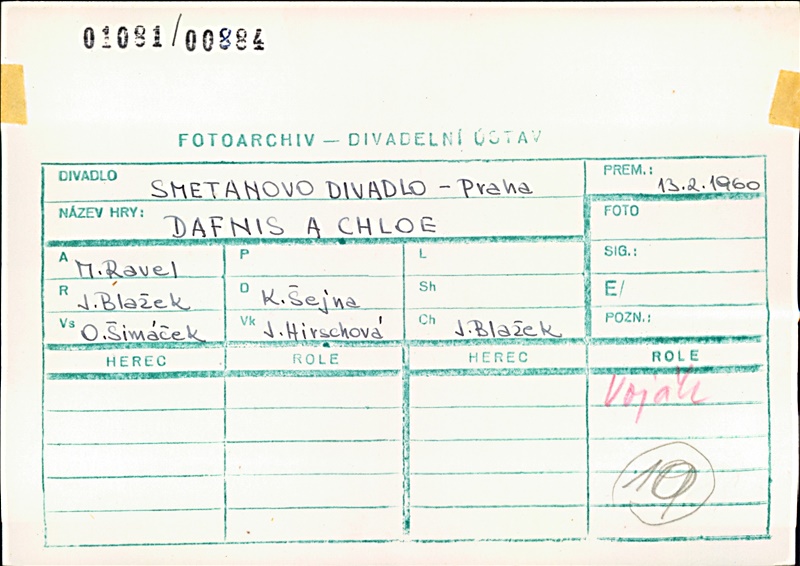 01081/00884
FOTOARCHIV — DIVADELNÍ ÚSTAV
DIVADLO SMETANOVO DIVADLO - Praha
PREM.: 13.2.1960
NÁZEV HRY: DAFNIS A CHLOE
FOTO
A M. Ravel P L
SIG.:
R J. Blažek D K. Šejna Sh
E/
Vs O. Šimáček Vk J. Hirschová Ch J. Blažek
POZN.:
HEREC ROLE HEREC ROLE
Vojáče
19